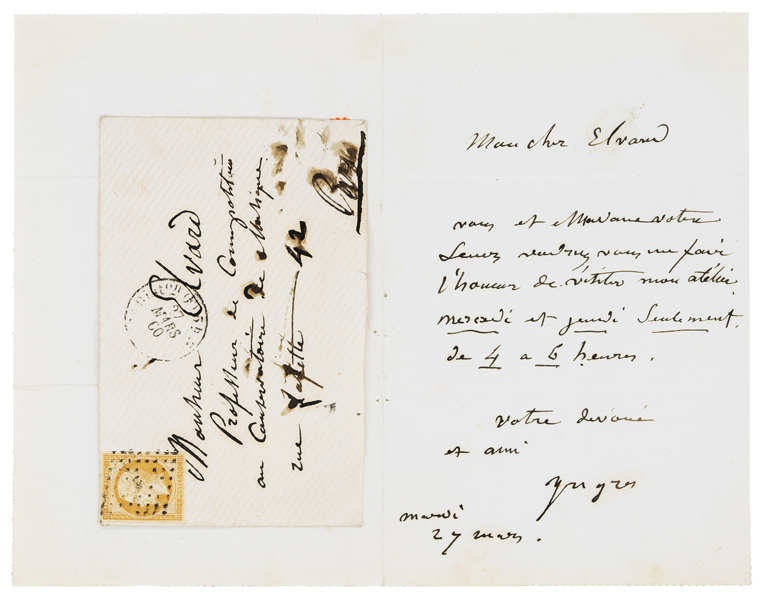 Monsieur Elvard
Professeur de Composition
au Conservatoire de Musique.
rue Lafitte 42
Paris
27
MARS
60
Mon cher Elvard
vous et Madame votre
Soeur voudrez vous me faire
l'honneur de visiter mon atélier
mercredi et jeudi Seulement,
de 4 a 6 heures.
votre devoué
et ami
Yngres
mardi
27 mars.